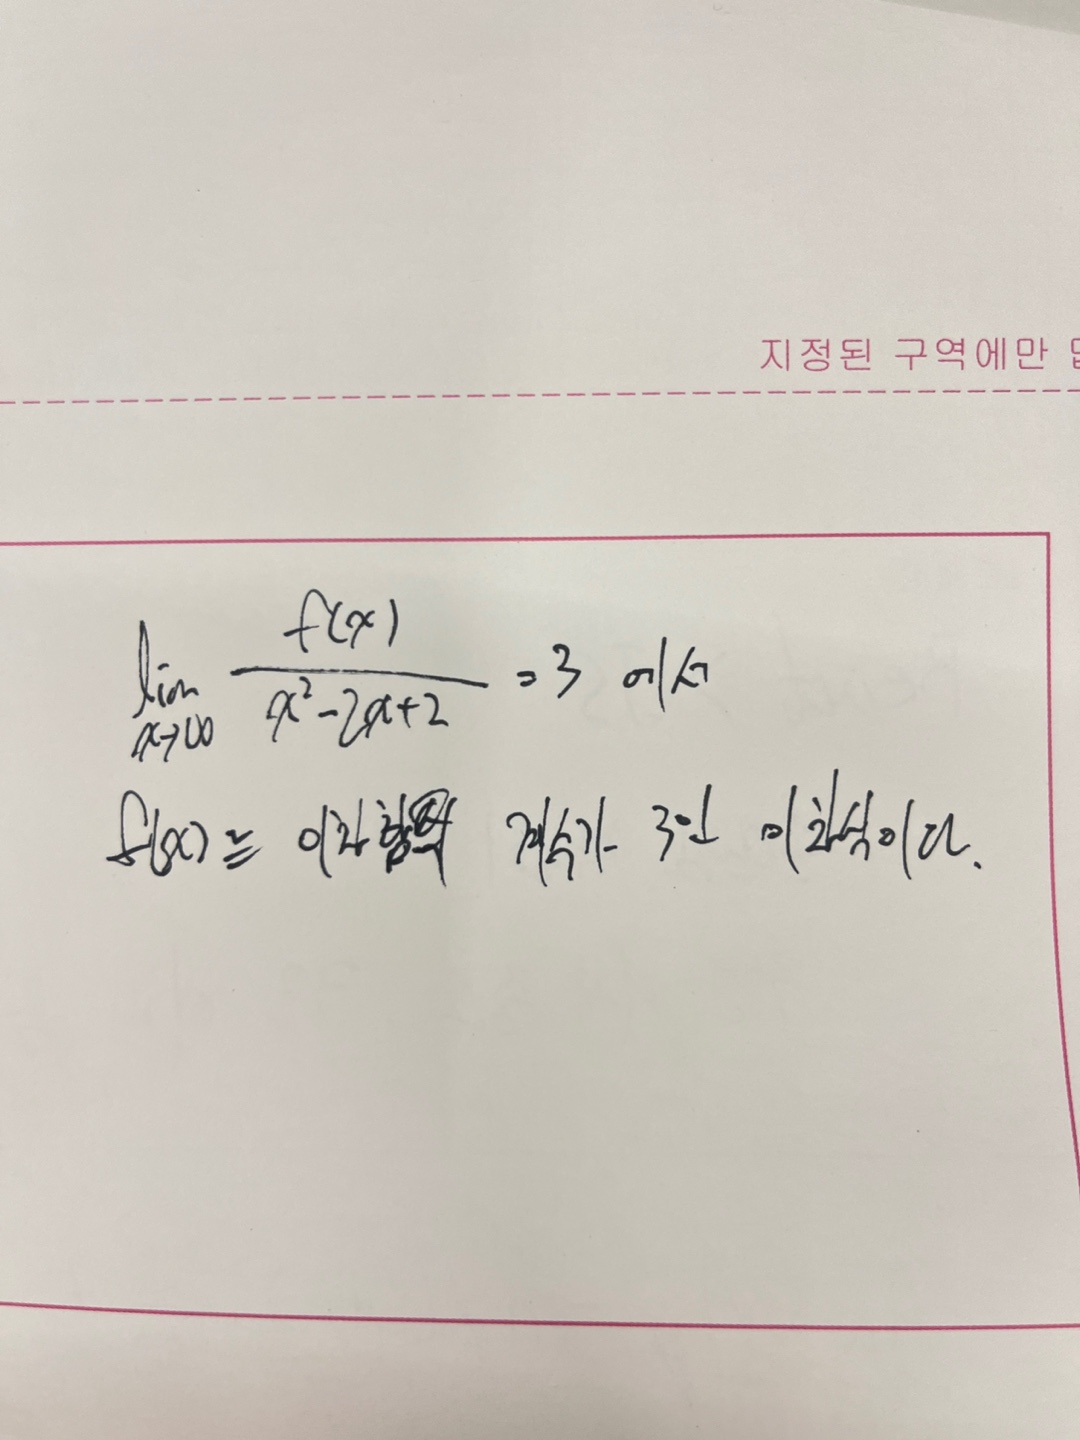 지정된 구역에만
lim x→∞ f(x) / x²-2x+2 = 3 에서
f(x)는 이차항의 계수가 3인 이차식이다.